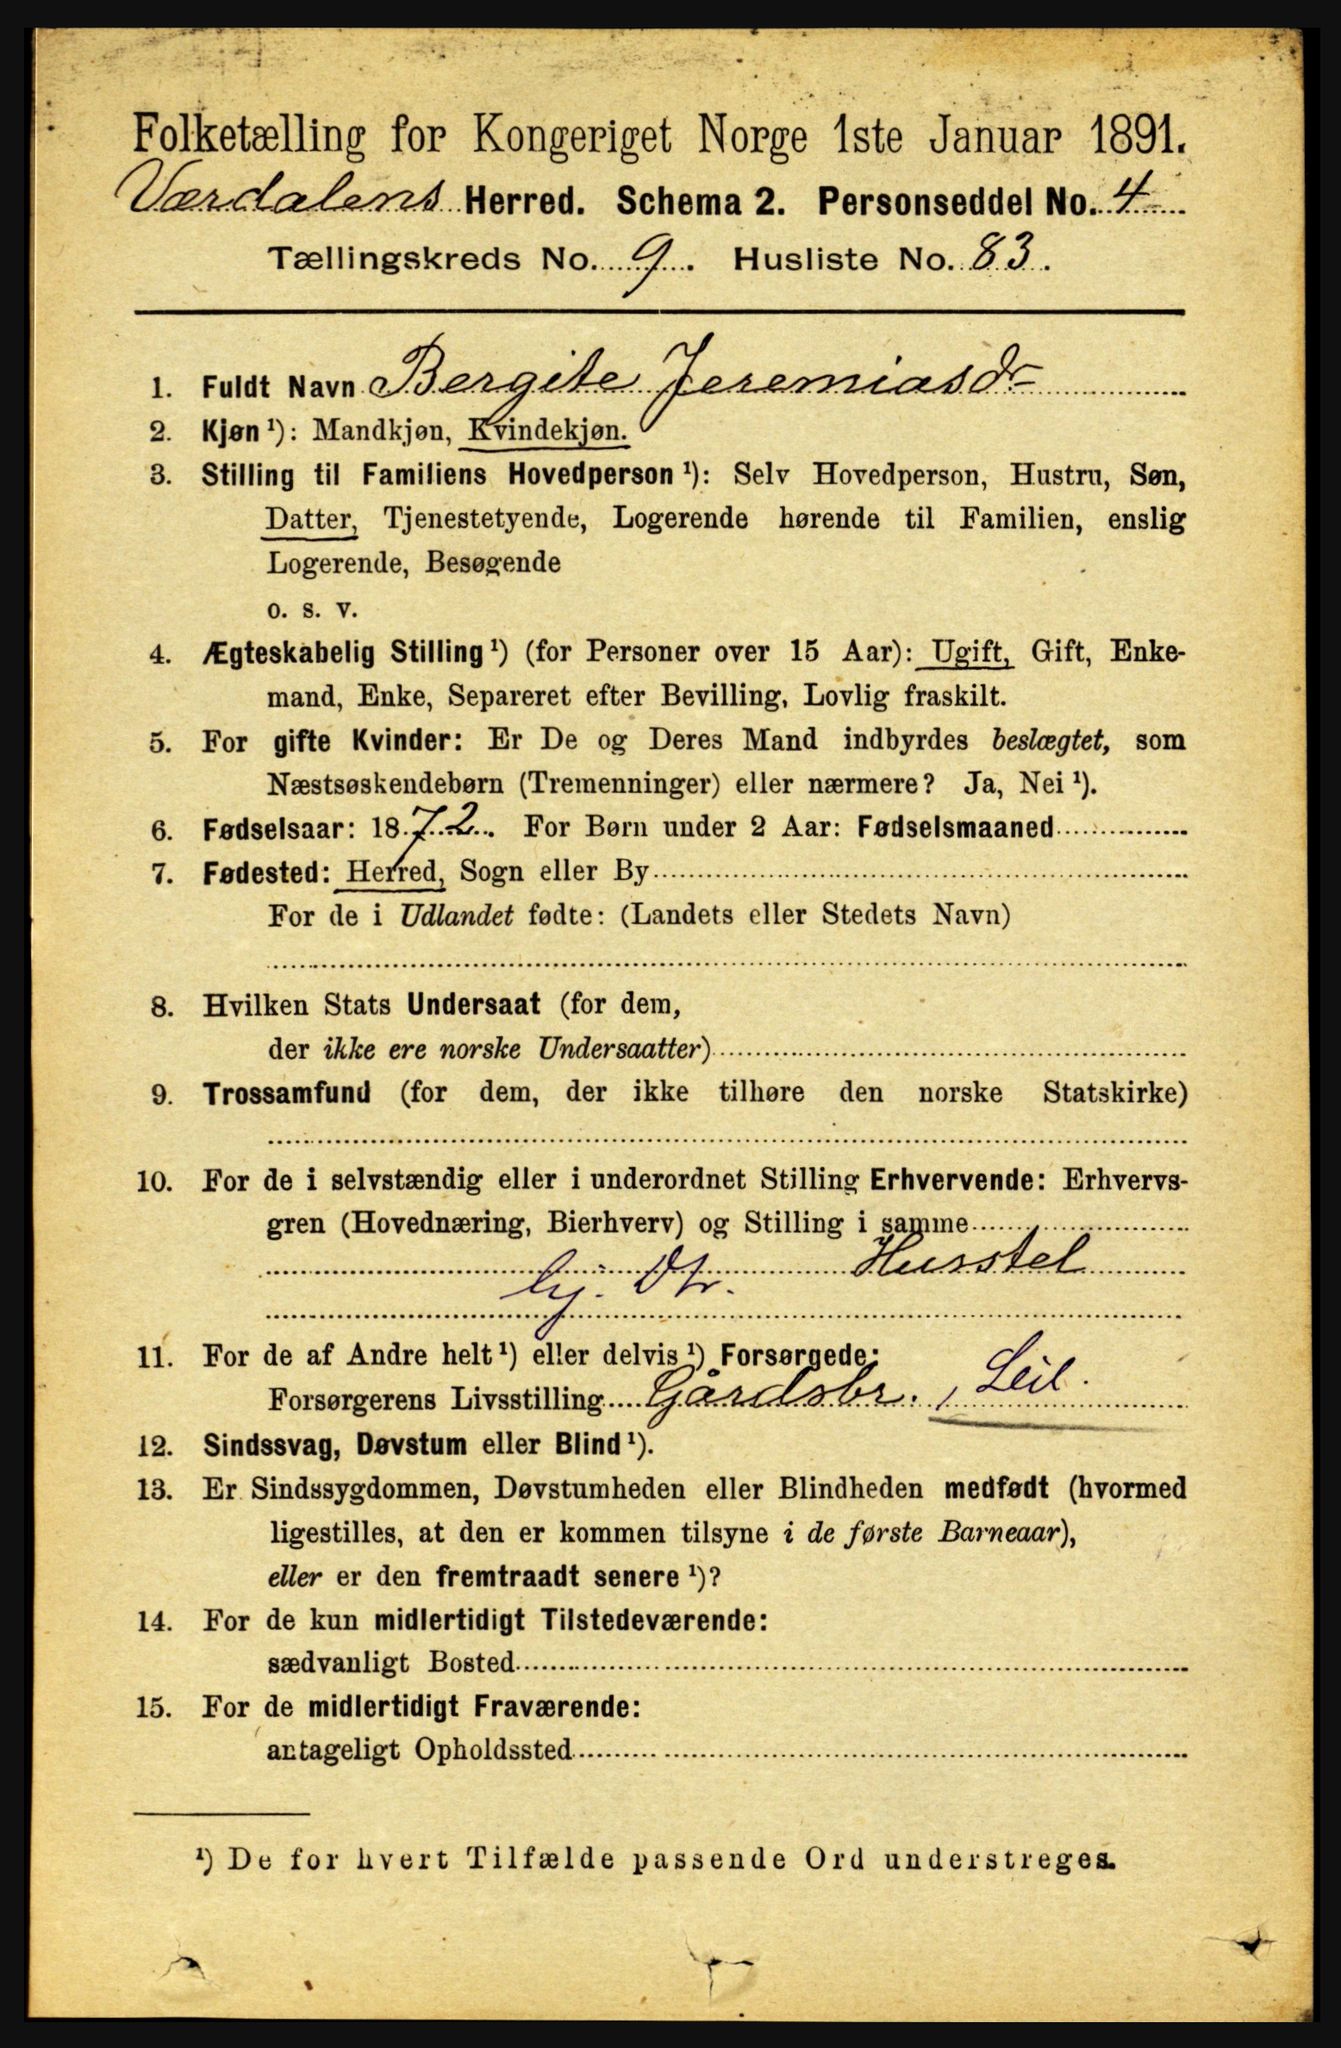 Folketælling for Kongeriget Norge 1ste Januar 1891.
Værdalens Herred. Schema 2. Personseddel No. 4
Tællingskreds No. 9. Husliste No. 83.
1. Fuldt Navn Bergite Jeremiasdr
2. Kjøn ¹): Mandkjøn, Kvindekjøn.
3. Stilling til Familiens Hovedperson ¹): Selv Hovedperson, Hustru, Søn,
Datter, Tjenestetyende, Logerende hørende til Familien, enslig
Logerende, Besøgende
o. s. v.
4. Ægteskabelig Stilling ¹) (for Personer over 15 Aar): Ugift, Gift, Enke-
mand, Enke, Separeret efter Bevilling, Lovlig fraskilt.
5. For gifte Kvinder: Er De og Deres Mand indbyrdes beslægtet, som
Næstsøskendebørn (Tremenninger) eller nærmere? Ja, Nei ¹).
6. Fødselsaar: 1872. For Børn under 2 Aar: Fødselsmaaned
7. Fødested: Herred, Sogn eller By
For de i Udlandet fødte: (Landets eller Stedets Navn)
8. Hvilken Stats Undersaat (for dem,
der ikke ere norske Undersaatter)
9. Trossamfund (for dem, der ikke tilhøre den norske Statskirke)
10. For de i selvstændig eller i underordnet Stilling Erhvervende: Erhvervs-
gren (Hovednæring, Bierhverv) og Stilling i samme
Husstel
hj. Dtr.
11. For de af Andre helt ¹) eller delvis ¹) Forsørgede:
Forsørgerens Livsstilling Gårdsbr., Leil.
12. Sindssvag, Døvstum eller Blind ¹).
13. Er Sindssygdommen, Døvstumheden eller Blindheden medfødt (hvormed
ligestilles, at den er kommen tilsyne i de første Barneaar),
eller er den fremtraadt senere ¹)?
14. For de kun midlertidigt Tilstedeværende:
sædvanligt Bosted
15. For de midlertidigt Fraværende:
antageligt Opholdssted
¹) De for hvert Tilfælde passende Ord understreges.